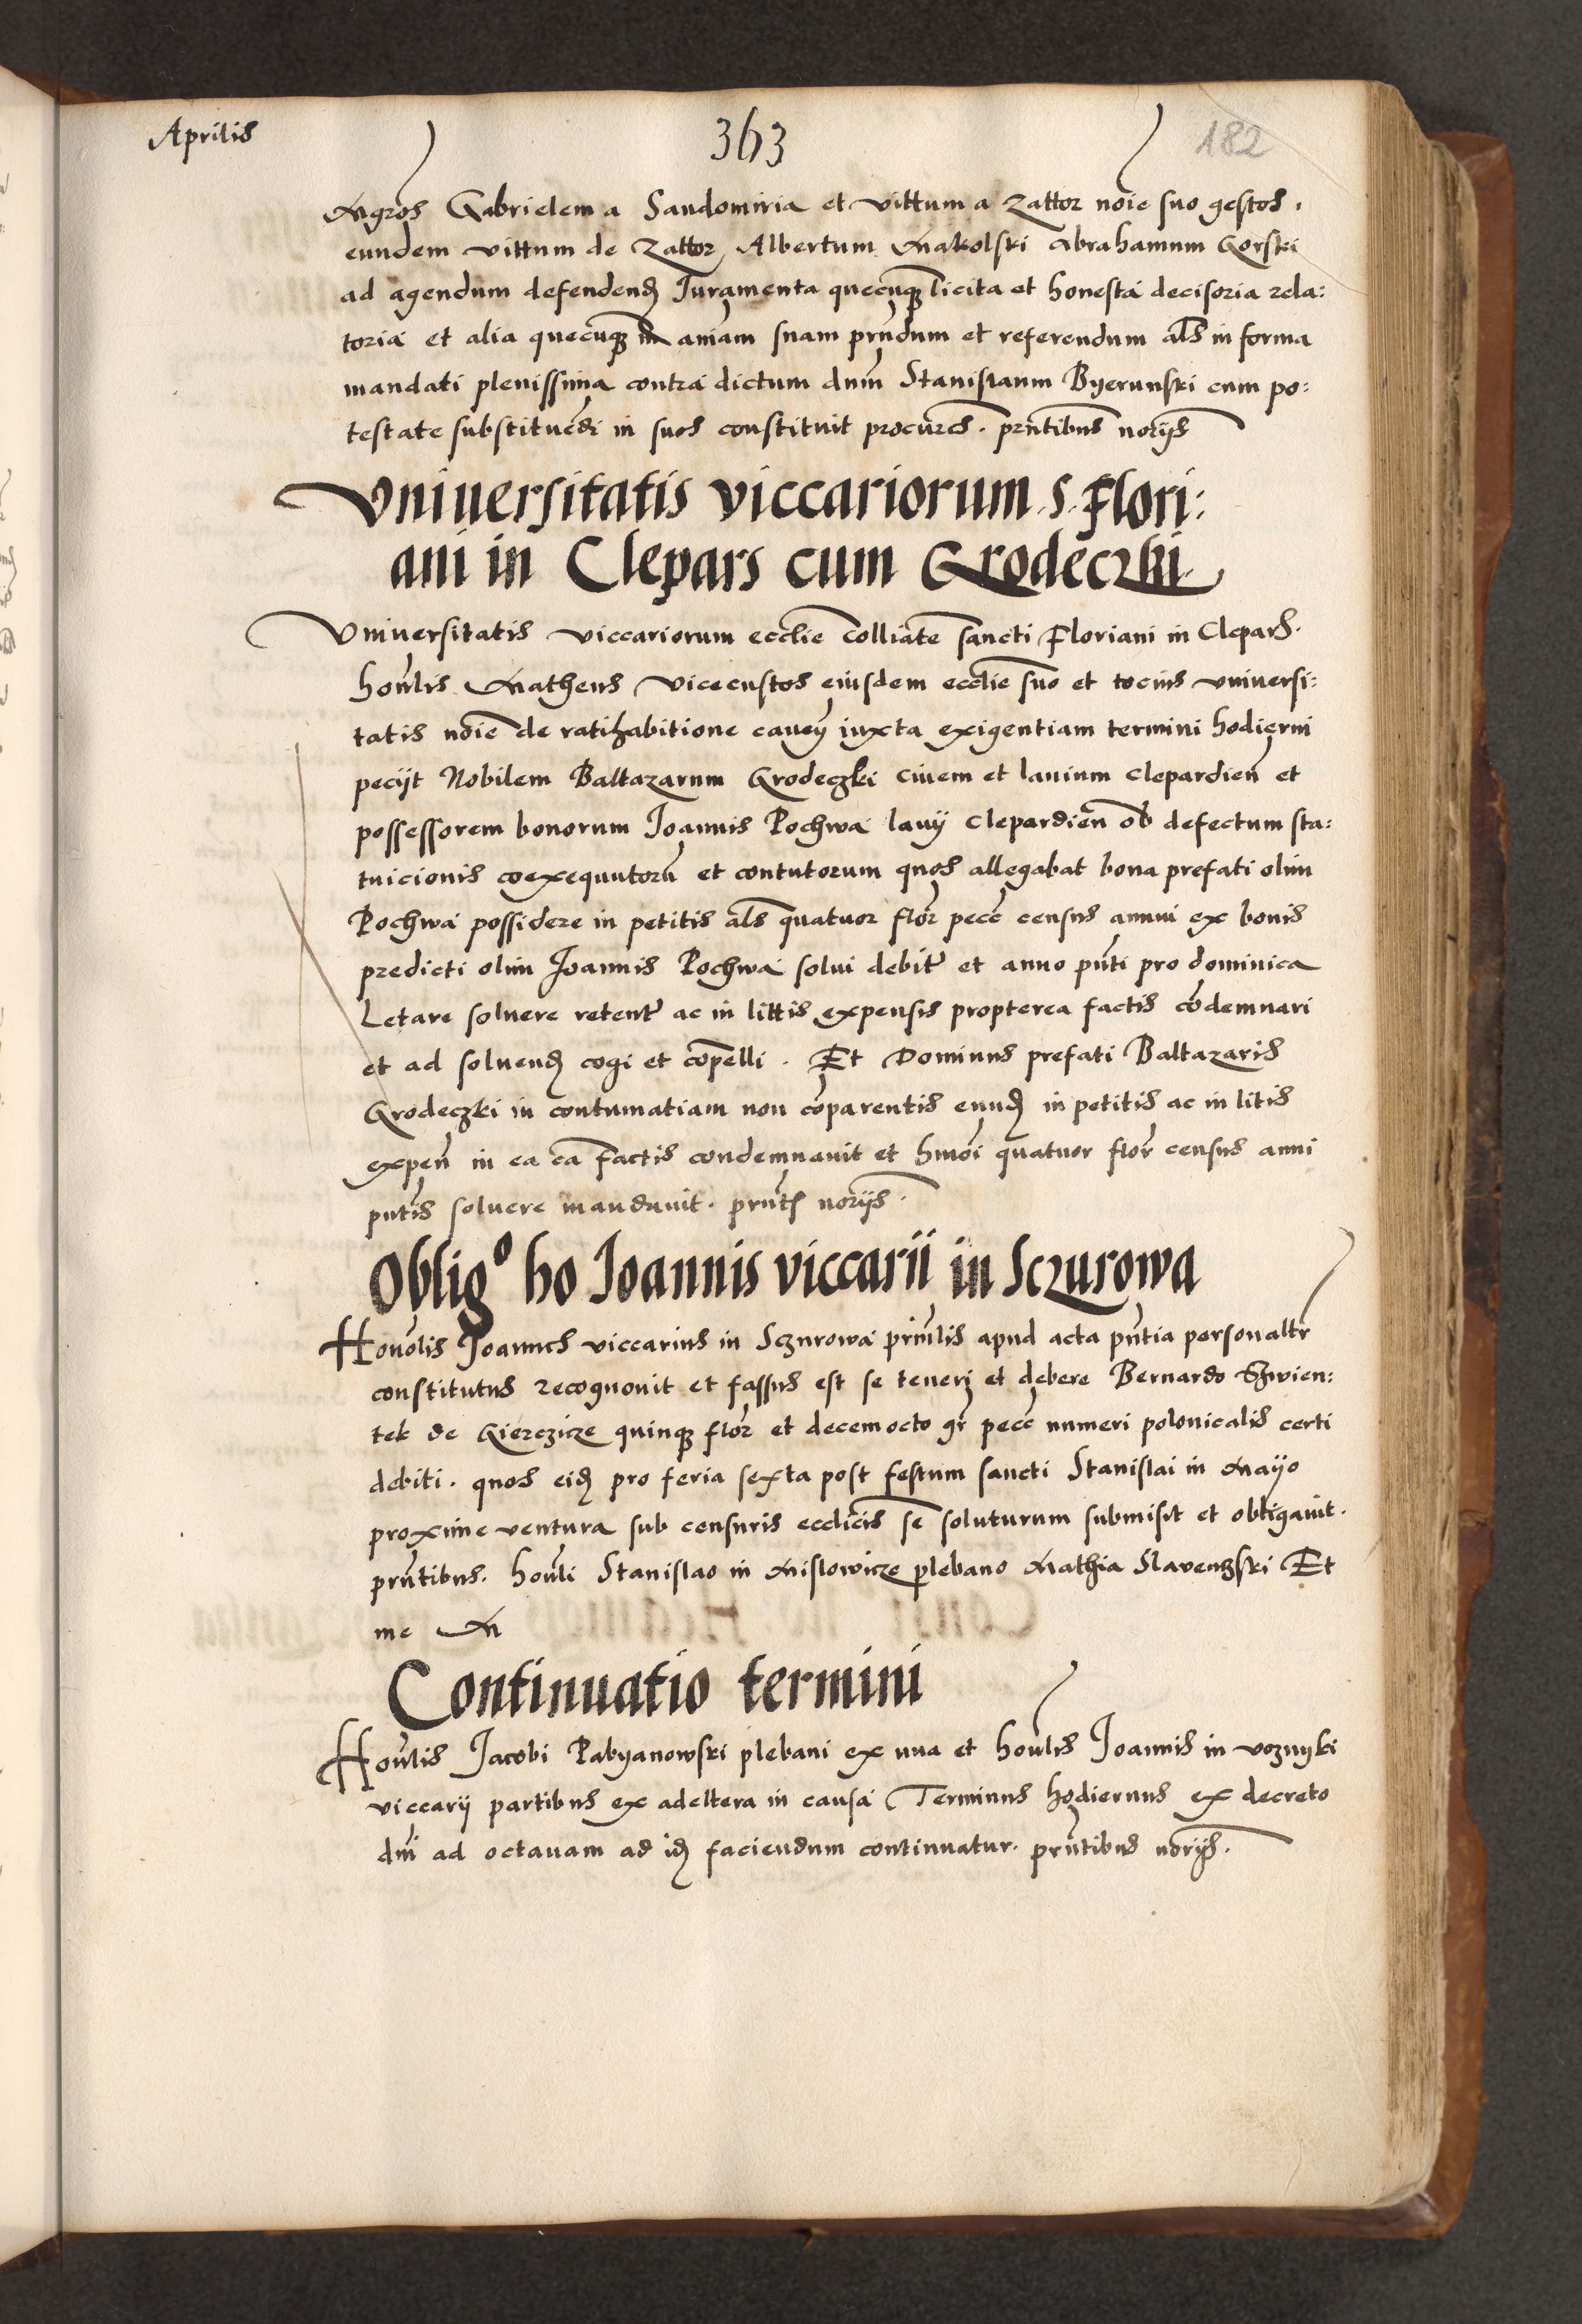 Aprilis
363
182
Mgros Gabrielem a Sandomiria et vittum a Zattor noie suo gestos.
eundem vittum de Zattor Albertum Makolski Abrahamum Gorski
ad agendum defendend Juramenta quecunq licita et honesta decisoria rela:
toria et alia quecunq in aniam suam prndum et referendum als in forma
mandati plenissima contra dictum dnm Stanislaum Byerunski cum po:
testate substituedi in suos constituit procures. prntibus noriis
Universitatis viccariorum .s. Flori:
ani in Clepars cum Grodeczki
Universitatis viccariorum ecclie colliate sancti Floriani in Clepars.
honlis Matheus Vicecustos eiusdem ecclie suo et tocius universi:
tatis noie de ratihabitione caven iuxta exigentiam termini hodierni
peciit Nobilem Baltazarum Grodeczki civem et lanium clepardien et
possessorem bonorum Joannis Pochwa lanii clepardien ob defectum sta:
tuicionis coexequutoru et contutorum quos allegabat bona prefati olim
Pochwa possidere in petitis als quatuor flor pecc census annui ex bonis
predicti olim Joannis Pochwa solui debitr et anno pnti pro dominica
Letare soluere retentr ac in littis expensis propterea factis codemnari
et ad soluend cogi et copelli. Et Dominus prefati Baltazaris
Grodeczki in contumatiam non coparentis eund in petitis ac in litis
expen in ea ca factis condemnavit et hmoi quatuor flor census anni
pntis soluere mandavit. prnts noriis.
Oblig° ho Joannis viccarii in Sczurowa
Honolis Joannes viccarius in Sczurowa prinlis apud acta pntia personaltr
constitutus recognovit et fassus est se teneri et debere Bernardo Swien:
tek de Gierczicze quinq flor et decemocto gr pecc numeri polonicalis certi
debiti. quos eid pro feria sexta post festum sancti Stanislai in Mayo
proxime ventura sub censuris ecclicis se soluturum submisit et obligavit.
prntibus. honli Stanislao in Mislowicze plebano Mathia Slavenczski Et
me M
Continuatio termini
Honlis Jacobi Pabyanowski plebani ex una et honlis Joannis in voznyki
viccarii partibus ex adeltera in causa Terminus hodiernus ex decreto
dni ad octavam ad id faciendum continuatur. prntibus noriis.